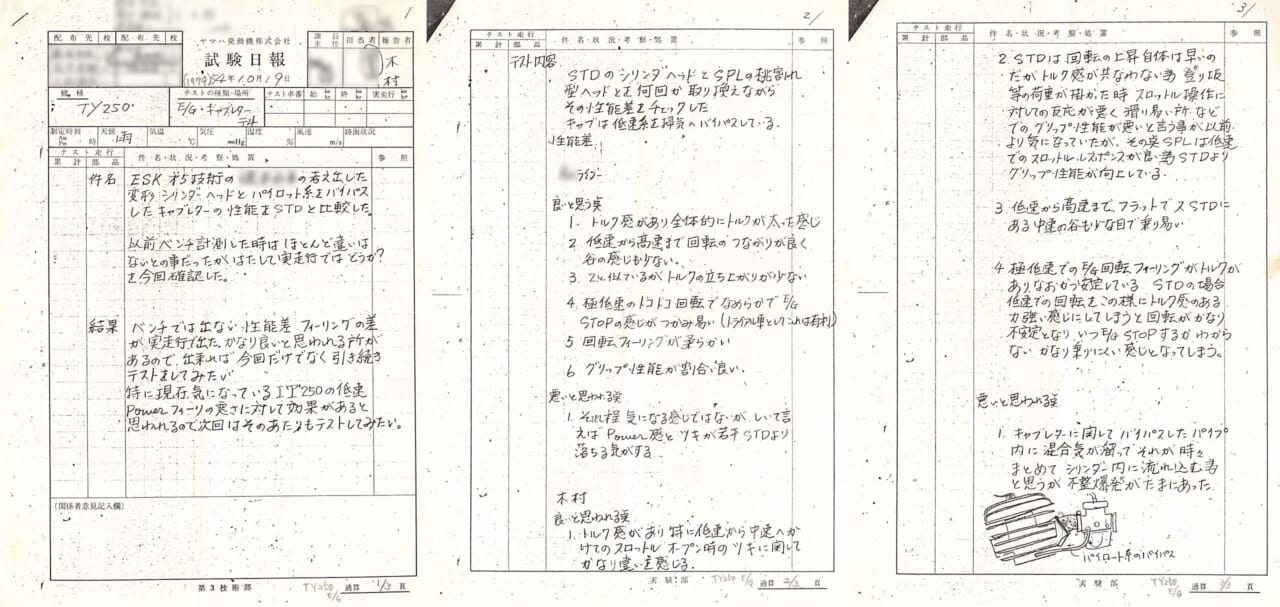 1
配布先 枚 配布先 枚
ヤマハ発動機株式会社
試験日報
(1979)54年10月19日
課長 主任 担当者 報告者
木村
機種
TY250
テストの種類・場所
E/G・キャブレターテスト
テスト車番 始 km/hr 終 km/hr 実走行 km/hr
測定時刻 Am Pm 時 天候 雨 気温 ℃ 気圧 mmHg 湿度 % 風速 m/s 路面状況
テスト走行
累計 部品 件名・状況・考察・処置 参照
件名 ESK 第5技術の の考え出した
変形シリンダーヘッドとパイロット系をバイパス
したキャブレターの性能をSTDと比較した。
以前ベンチ計測した時はほとんど違いは
ないとの事だったが、はたして実走行ではどうか?
を今回確認した。
結果 ベンチでは出ない性能差 フィーリングの差
が、実走行で出た。かなり良いと思われる所が
あるので、出来れば今回だけでなく引き続き
テストをしてみたい
特に現在気になっているIT250の低速
Powerフィーリの悪さに対して効果があると
思われるので次回はそのあたりもテストしてみたい。
(関係者意見記入欄)
第3技術部
TY250 E/G
通算 1/3 頁
2/
テスト走行
累計 部品 件名・状況・考察・処置 参照
テスト内容
STDのシリンダヘッドとSPLの
型ヘッドとを何回か取り換えながら
その性能差をチェックした
キャブは低速系を掃気へバイパスしている。
性能差
ライダー
良いと思う実
1. トルク感があり全体的にトルクが太った感じ
2 低速から高速まで回転のつながりが良く
谷の感じも少ない。
3. 2に似ているがトルクの立ち上がりが少ない
4. 極低速のトコトコ回転でなめらかで E/G
STOPの感じがつかみ易い(トライアル車としてこれは有利)
5 回転フィーリングが柔らかい
6 グリップ性能が割合い良い.
悪いと思われる実
1. それ程気になる感じではないが しいて言
えばPower感とツキが若干STDより
落ちる気がする
木村
良いと思われる実
1. トルク感があり特に低速から中速へか
けてのスロットルオープン時のツキに関して
かなり違いを感じる.
実験部
TY250 E/G
通算 2/3 頁
3/
テスト走行
累計 部品 件名・状況・考察・処置 参照
2. STDは回転の上昇自体は早いの
だがトルク感が共なわない為 登り坂
等の荷重が掛かった時スロットル操作に
対しての反応が悪く滑り易い所などで
でのグリップ性能が悪いと言う事が以前
より気になっていたが、その実SPLは低速
でのスロットルレスポンスが良い為STDより
グリップ性能が向上している.
3. 低速から高速まで、フラットでスSTDに
ある中速の谷も少な目で乗り易い
4 極低速でのE/G回転フィーリングがトルクが
ありなおかつ安定している STDの場合
低速での回転をこの様にトルク感のある
力強い感じにしてしまうと回転がかなり
不安定となり、いつE/G STOPするかわから
ない かなり乗りにくい感じとなってしまう。
悪いと思われる実
1. キャブレターに関してバイパスしたパイプ
内に混合気が溜ってそれが時々
まとめてシリンダー内に流れ込む為
と思うが不整爆発がたまにあった.
パイロット系のバイパス
実験部
TY250 E/G
通算 3/3 頁